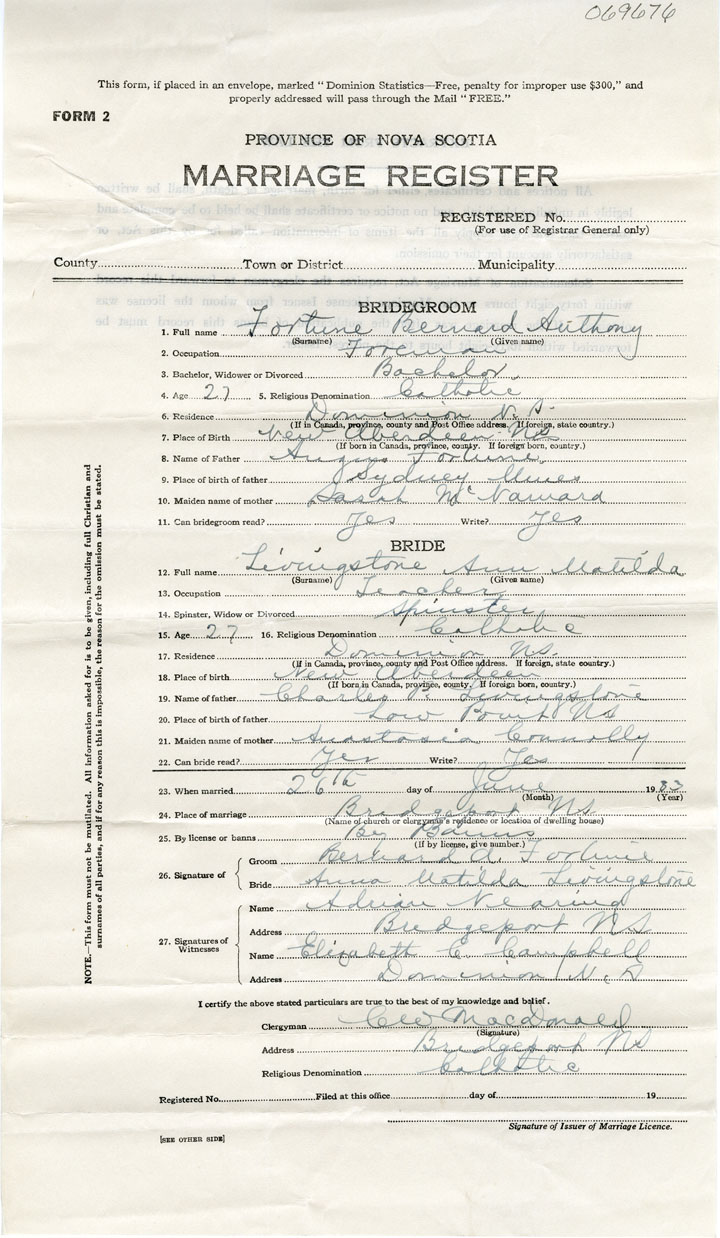 069676
This form, if placed in an envelope, marked "Dominion Statistics—Free, penalty for improper use $300," and
properly addressed will pass through the Mail "FREE."
FORM 2
PROVINCE OF NOVA SCOTIA
MARRIAGE REGISTER
REGISTERED No.
(For use of Registrar General only)
County Town or District Municipality
BRIDEGROOM
1. Full name Fortune Bernard Anthony
(Surname) (Given name)
2. Occupation Foreman
3. Bachelor, Widower or Divorced Bachelor
4. Age 27 5. Religious Denomination Catholic
6. Residence Dominion N.S.
(If in Canada, province, county and Post Office address. If foreign, state country.)
7. Place of Birth New Aberdeen NS
(If born in Canada, province, county. If foreign born, country.)
8. Name of Father Angus Fortune
9. Place of birth of father Sydney Mines
10. Maiden name of mother Sarah McNamara
11. Can bridegroom read? Yes Write? Yes
BRIDE
12. Full name Livingstone Ann Matilda
(Surname) (Given name)
13. Occupation Teacher
14. Spinster, Widow or Divorced Spinster
15. Age 27 16. Religious Denomination Catholic
17. Residence Dominion NS.
(If in Canada, province, county and Post Office address. If foreign, state country.)
18. Place of birth New Aberdeen
(If born in Canada, province, county. If foreign born, country.)
19. Name of father Charles P. Livingstone
20. Place of birth of father Low Point NS
21. Maiden name of mother Anastasia Connolly
22. Can bride read? Yes Write? Yes
23. When married 26th day of June 1933
(Month) (Year)
24. Place of marriage Bridgeport NS.
(Name of church or clergyman's residence or location of dwelling house)
25. By license or banns By Banns
(If by license, give number.)
26. Signature of
Groom Bernard A. Fortune
Bride Anna Matilda Livingstone
27. Signatures of Witnesses
Name Adrian Nearing
Address Bridgeport NS
Name Elizabeth C. Campbell
Address Dominion N.S.
I certify the above stated particulars are true to the best of my knowledge and belief.
Clergyman MacDonald
(Signature)
Address Bridgeport NS
Religious Denomination Catholic
Registered No. Filed at this office day of 19
Signature of Issuer of Marriage Licence.
[SEE OTHER SIDE]
NOTE.—This form must not be mutilated. All information asked for is to be given, including full Christian and
surnames of all parties, and if for any reason this is impossible, the reason for the omission must be stated.